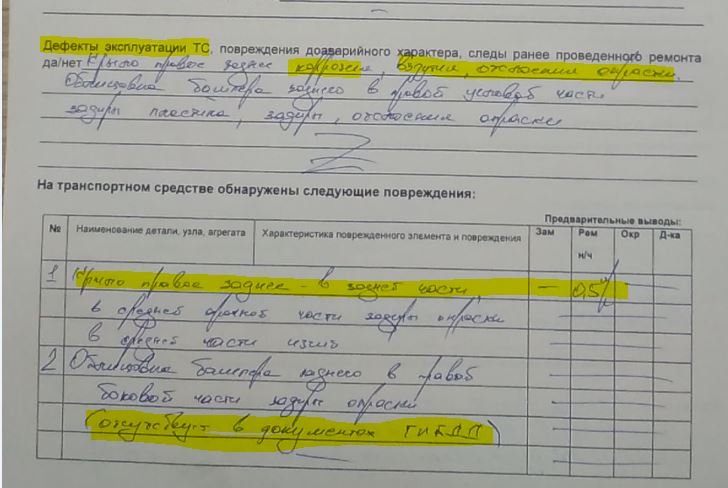 Дефекты эксплуатации ТС, повреждения доаварийного характера, следы ранее проведенного ремонта
да/нет Крыло правое заднее коррозия, вздутия, отслоения окраски.
Облицовка бампера заднего в правой угловой части
задиры пластика, задиры, отслоения окраски
На транспортном средстве обнаружены следующие повреждения:
Предварительные выводы:
№ Наименование детали, узла, агрегата Характеристика поврежденного элемента и повреждения Зам Рем Окр Д-ка
н/ч
1 Крыло правое заднее - в задней части, — 0,5
в средней арочной части задиры окраски
в средней части изгиб
2 Облицовка бампера заднего в правой
боковой части задиры окраски
(отсутствует в документах ГИБДД)